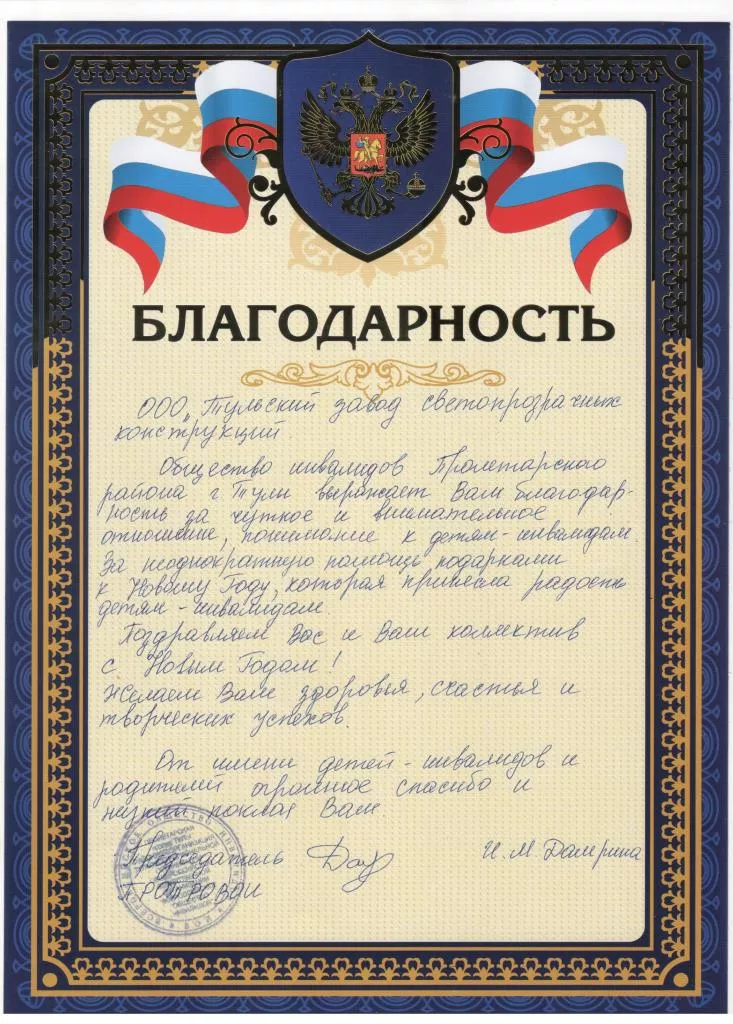 БЛАГОДАРНОСТЬ
ООО „Тульский завод светопрозрачных
конструкций.
Общество инвалидов Пролетарского
района г. Тулы выражает Вам благодар-
ность за чуткое и внимательное
отношение, понимание к детям-инвалидам.
За неоднократную помощь подарками
к Новому Году, которая принесла радость
детям-инвалидам.
Поздравляем Вас и Ваш коллектив
с Новым Годом!
Желаем Вам здоровья, счастья и
творческих успехов.
От имени детей-инвалидов и
родителей огромное спасибо и
низкий поклон Вам
Председатель
И.М.
ВСЕРОССИЙСКОЕ ОБЩЕСТВО ИНВАЛИДОВ